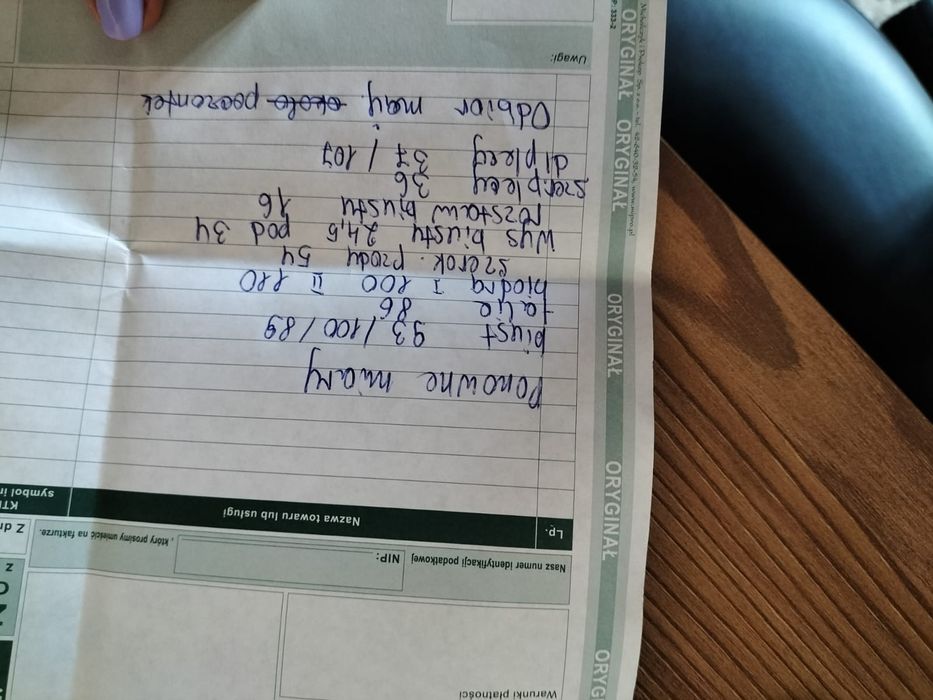 Warunki płatności
Nasz numer identyfikacji podatkowej NIP: , który prosimy umieścić na fakturze.
Z
Z dr
Lp. Nazwa towaru lub usługi
symbol in
Ponowne miary
biust 93 / 100 / 89
talię 86
biodra I 100 II 110
szerok. przody 54
Wys biusty 24,5 pod 34
rozstaw biusty 16
szer plecy 36
dł plecy 37 / 107
Odbiór maj. około
Uwagi:
ORYGINAŁ
ORYGINAŁ
ORYGINAŁ
ORYGINAŁ
ORYGINAŁ
333-2